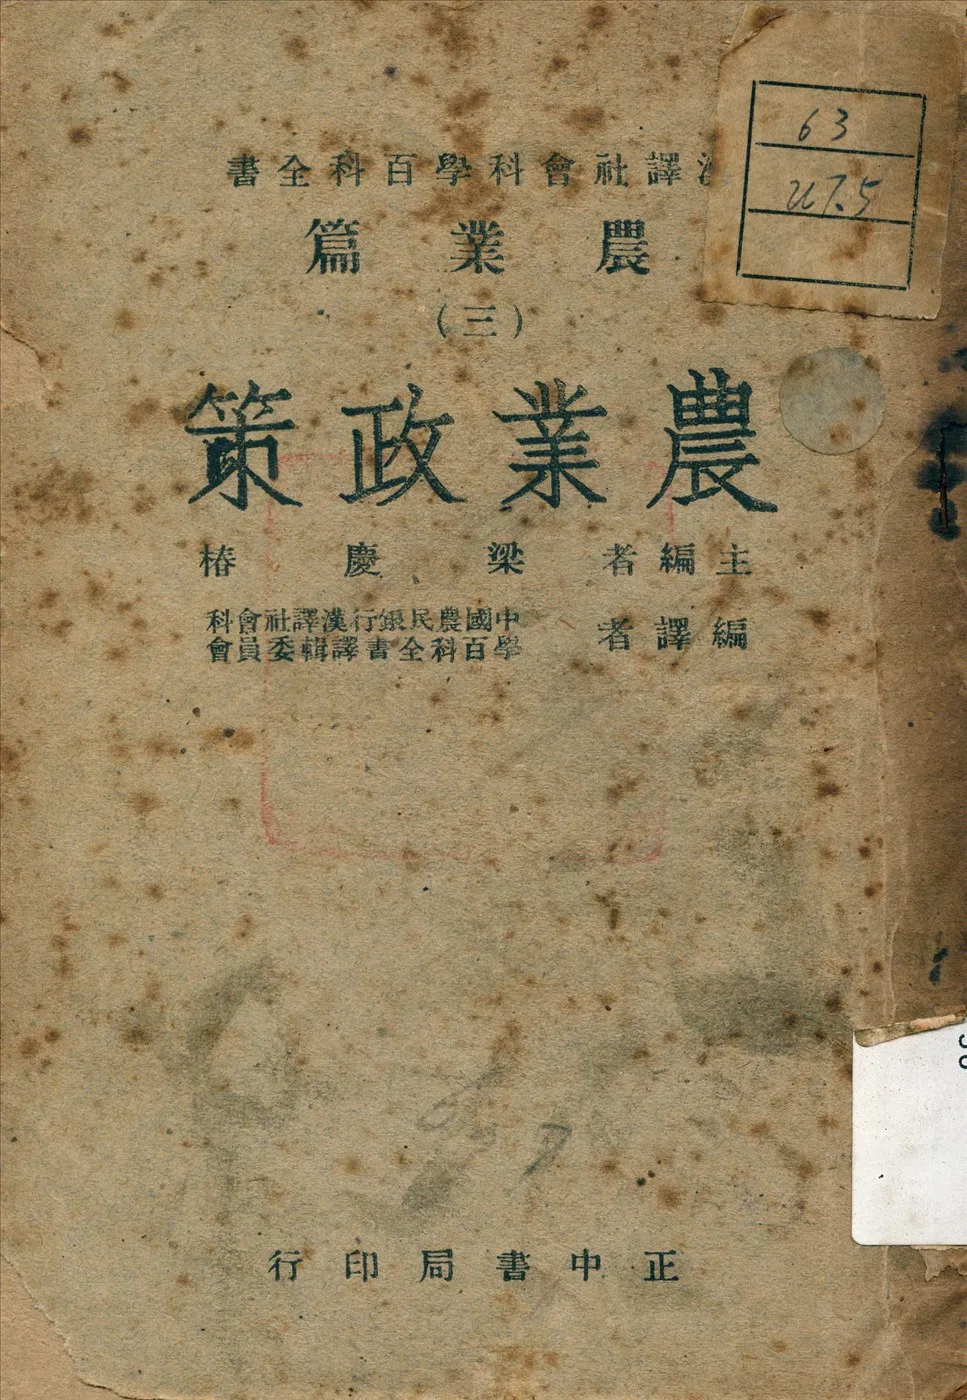 漢譯社會科學百科全書
農業篇
（三）
農業政策
主編者 梁慶椿
編譯者 中國農民銀行漢譯社會科
學百科全書譯輯委員會
正中書局印行
63
U7.5